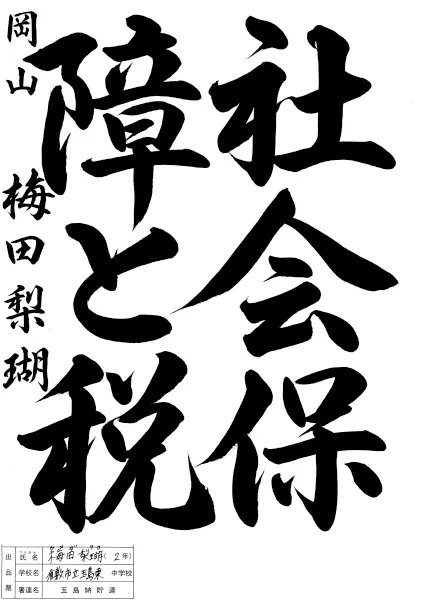 社会保
障と税
岡山 梅田梨瑚
出品票
氏名 梅田 梨瑚 (2年)
学校名 倉敷市立玉島東 中学校
署連名 玉島納貯連